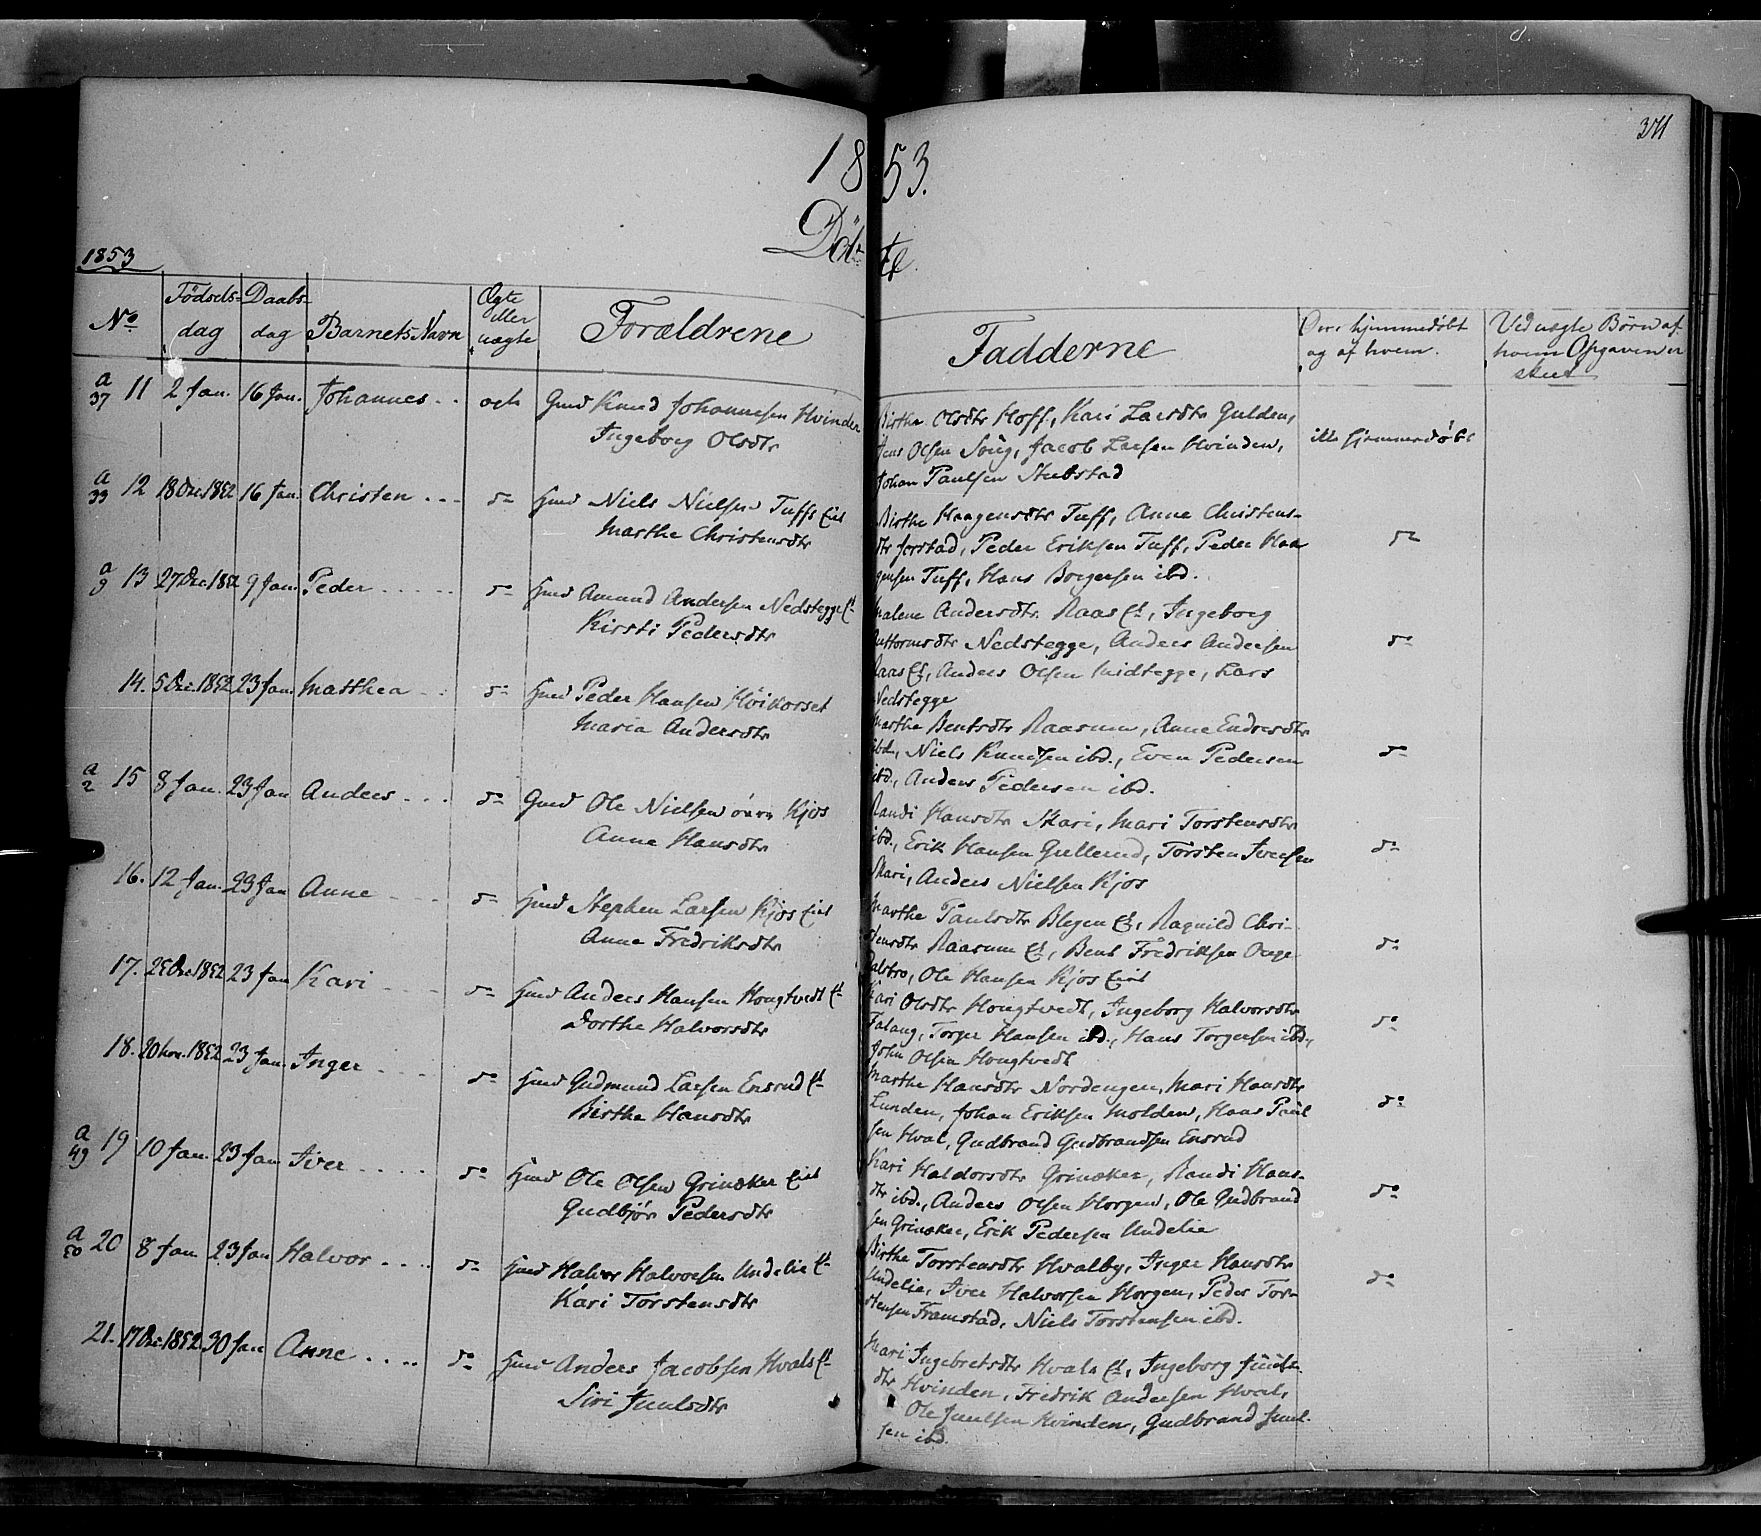 371
1853.
Döbte
1853
No Födsels-dag Daabs-dag Barnets Navn Ægte eller uægte Forældrene Fadderne Om hjemmedøbt og af hvem. Ved uægte Børn af hvem Opgaven er skeet
a 37 11 2 Jan. 16 Jan. Johannes .. ægte Gmd Knud Johannesen Hvinden
Ingeborg Olsdtr
Birthe Olsdtr Hoff, Kari Larsdtr Gulden,
Jens Olsen Sørig, Jacob Larsen Hvinden,
Johan Paulsen Stubstad
ikke hjemmedøbt
a 39 12 18 Dec. 1852 16 Jan. Christen ... do Hmd Niels Nielsen Tuffs Eie
Marthe Christensdtr
Birthe Haagensdtr Tuff, Anne Christens-
dtr Jorstad, Peder Eriksen Tuff, Peder Haa
gensen Tuff, Hans Borgersen ibd.
do
a 9 13 27 Dec. 1852 9 Jan. Peder ..... do Hmd Amund Andersen Nedstegge Et
Kirsti Pedersdtr
Malene Andersdtr Raas Et, Ingeborg
Guttormsdtr Nedstegge, Anders Andersen
Raas Et, Anders Olsen Midtegge, Lars
Nedstegge
do
14. 5 Dec. 1852 23 Jan. Matthea .. do Hmd Peder Hansen Höikorset
Maria Andersdtr
Marthe Bentsdtr Raasum, Anne Endresdtr
ibd., Niels Knudsen ibd., Even Pedersen
ibd., Anders Pedersen ibd.
do
a 2 15 8 Jan. 23 Jan Anders ... do Gmd Ole Nielsen øvre Kjos
Anne Hansdtr
Randi Hansdtr Skari, Mari Torstensdtr
ibd., Erik Hansen Gullerud, Torsten Iversen
Skari, Anders Nielsen Kjos
do
16. 12 Jan. 23 Jan Anne ... do Hmd Stephen Larsen Kjos Eie
Anne Fredriksdtr
Marthe Paulsdtr Blegen Et, Ragnild Chri-
stensdtr Raasum Et, Bent Fredriksen
Ole Hansen Kjos Eie
do
17. 25 Dec. 1852 23 Jan Kari ... do Hmd Anders Hansen Hougtvedt Et
Dorthe Halvorsdtr
Kari Olsdtr Hougtvedt, Ingeborg Halvorsdtr
Falang, Torger Hansen ibd., Hans Torgersen ibd.,
John Olsen Hougtvedt
do
18. 20 Nov. 1852 23 Jan. Inger ... do Hmd Gudmund Larsen Ensrud Et
Birthe Hansdtr
Marthe Hansdtr Nordengen, Mari Hansdtr
Lunden, Johan Eriksen Molden, Hans Paul
sen Hval, Gudbrand Gudbrandsen Ensrud
do
a 49 19 10 Jan. 23 Jan Iver .... do Hmd Ole Olsen Grinaker Eie
Gudbjör Pedersdtr
Kari Haldorsdtr Grinaker, Randi Hans-
dtr ibd., Anders Olsen Horgen, Ole Gudbrand
sen Grinaker, Erik Pedersen Undelie
do
a 50 20 8 Jan 23 Jan Halvor .... do Hmd Halvor Halvorsen Undelie Et
Kari Torstensdtr
Birthe Torstensdtr Hvalby, Inger Hansdtr
Undelie, Iver Halvorsen Horgen, Peder Tor-
stensen Framstad, Niels Torstensen ibd.
do
21. 17 Dec. 1852 30 Jan Anne .... do Hmd Anders Jacobsen Hvals Et
Siri Juulsdtr
Mari Ingebretsdtr Hvals Et, Ingeborg Juuls-
dtr Hvinden, Fredrik Andersen Hval,
Ole Juulsen Hvinden, Gudbrand Juul-
sen ibd.